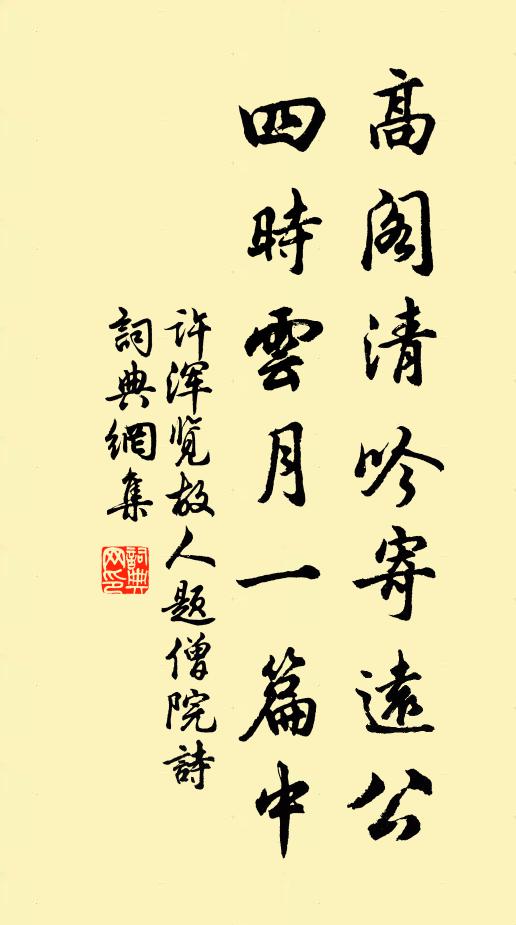 高閣清吟寄遠公
四時雲月一篇中
许浑览故人题僧院詩
詞典網集
詞典网印